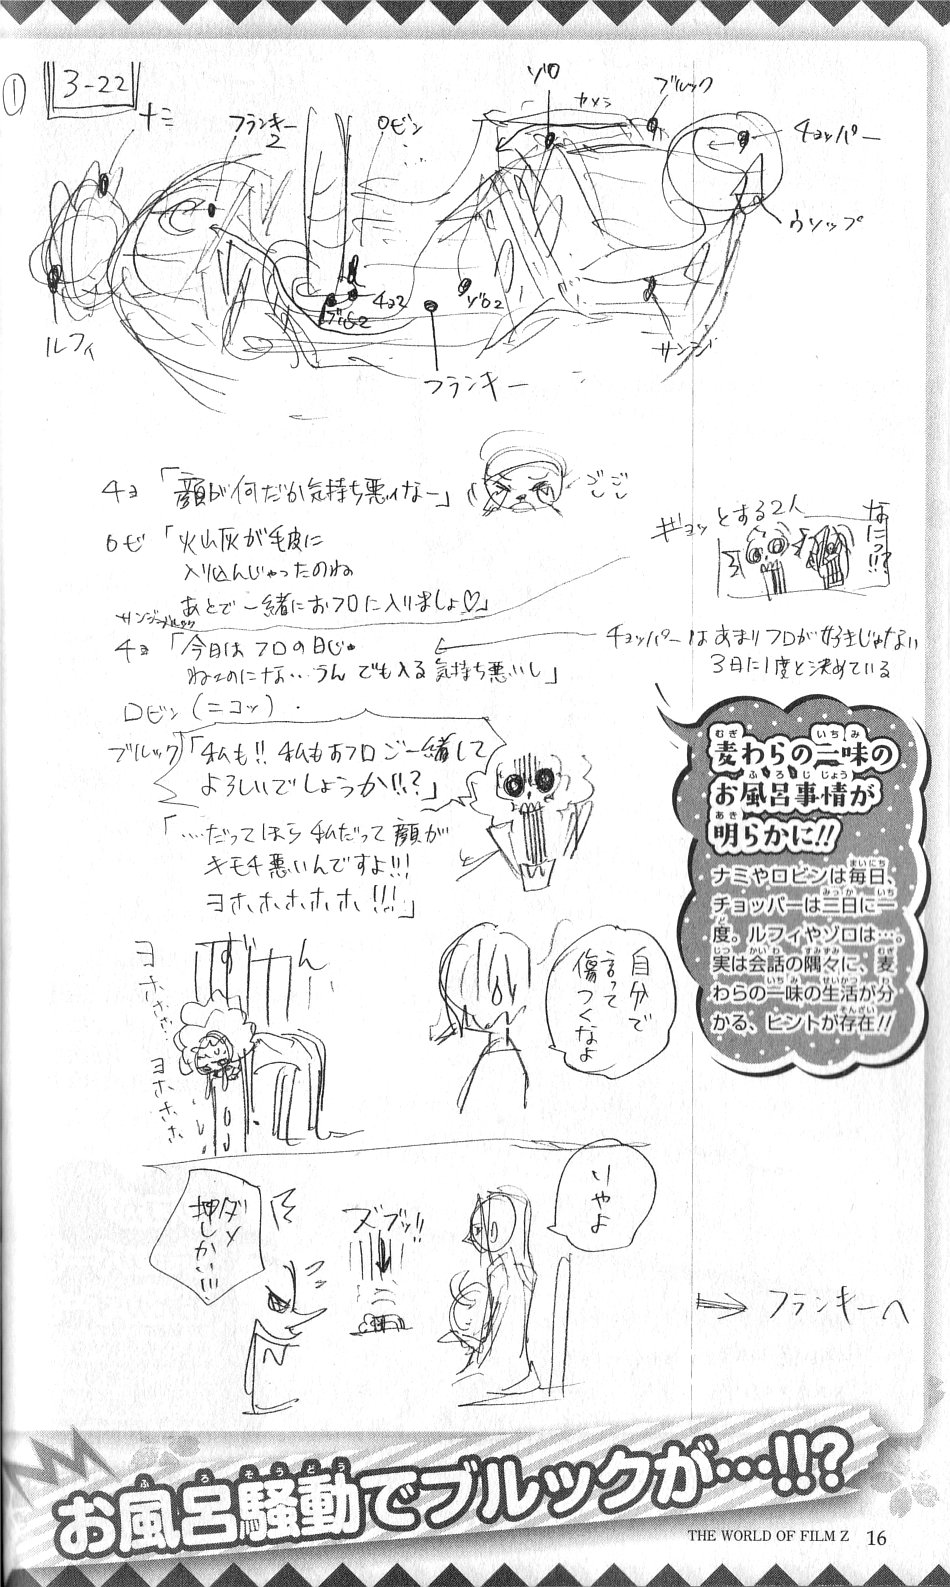 ①
3-22
ナミ
フランキー2
ロビン
ゾロ
カメラ
ブルック
チョッパー
ウソップ
ルフィ
チョ2
ゾロ2
フランキー
サンジ
チョ「顔が何だか気持ち悪ィなー」
ごし
ごし
ロビ「火山灰が毛皮に
入り込んじゃったのね
あとで一緒におフロに入りましょ♡」
ギョッとする2人
なにっ!!?
サンジ ブルック
チョ「今日はフロの日じゃ
ねェのにな…うん でも入る 気持ち悪いし」
チョッパーはあまりフロが好きじゃない
3日に1度と決めている
ロビン(ニコッ)
ブルック「私も!! 私もおフロご一緒して
よろしいでしょうか!!?」
「…だってほら 私だって顔が
キモチ悪いんですよ!!!
ヨホホホホホ!!!」
麦わらの一味の
お風呂事情が
明らかに!!
ナミやロビンは毎日、
チョッパーは三日に一
度。ルフィやゾロは…。
実は会話の隅々に、麦
わらの一味の生活が分
かる、ヒントが存在!!
ずーん
ヨホホホ…
ヨホホホホ
自分で
言って
傷つくなよ
いやよ
ズブッ!!
ダメ
押しかい!!!
⇒ フランキーへ
お風呂騒動でブルックが…!!?
THE WORLD OF FILM Z 16